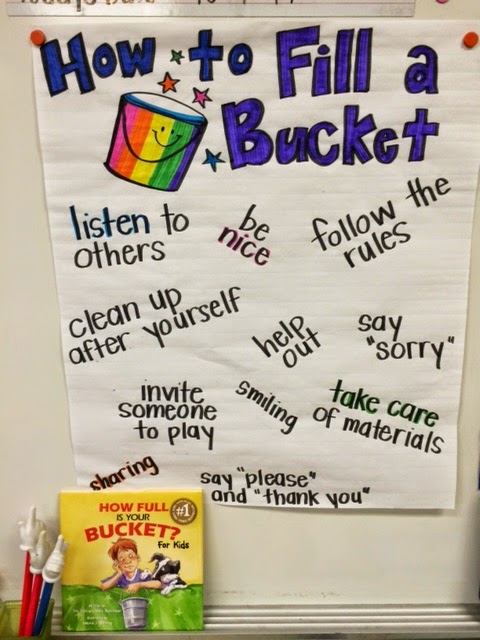 How to Fill a
Bucket
listen to
others
be
nice
follow the
rules
clean up
after yourself
help
out
say
"sorry"
invite
someone
to play
smiling
take care
of materials
sharing
say "please"
and "thank you"
HOW FULL
IS YOUR
BUCKET?
For Kids
#1